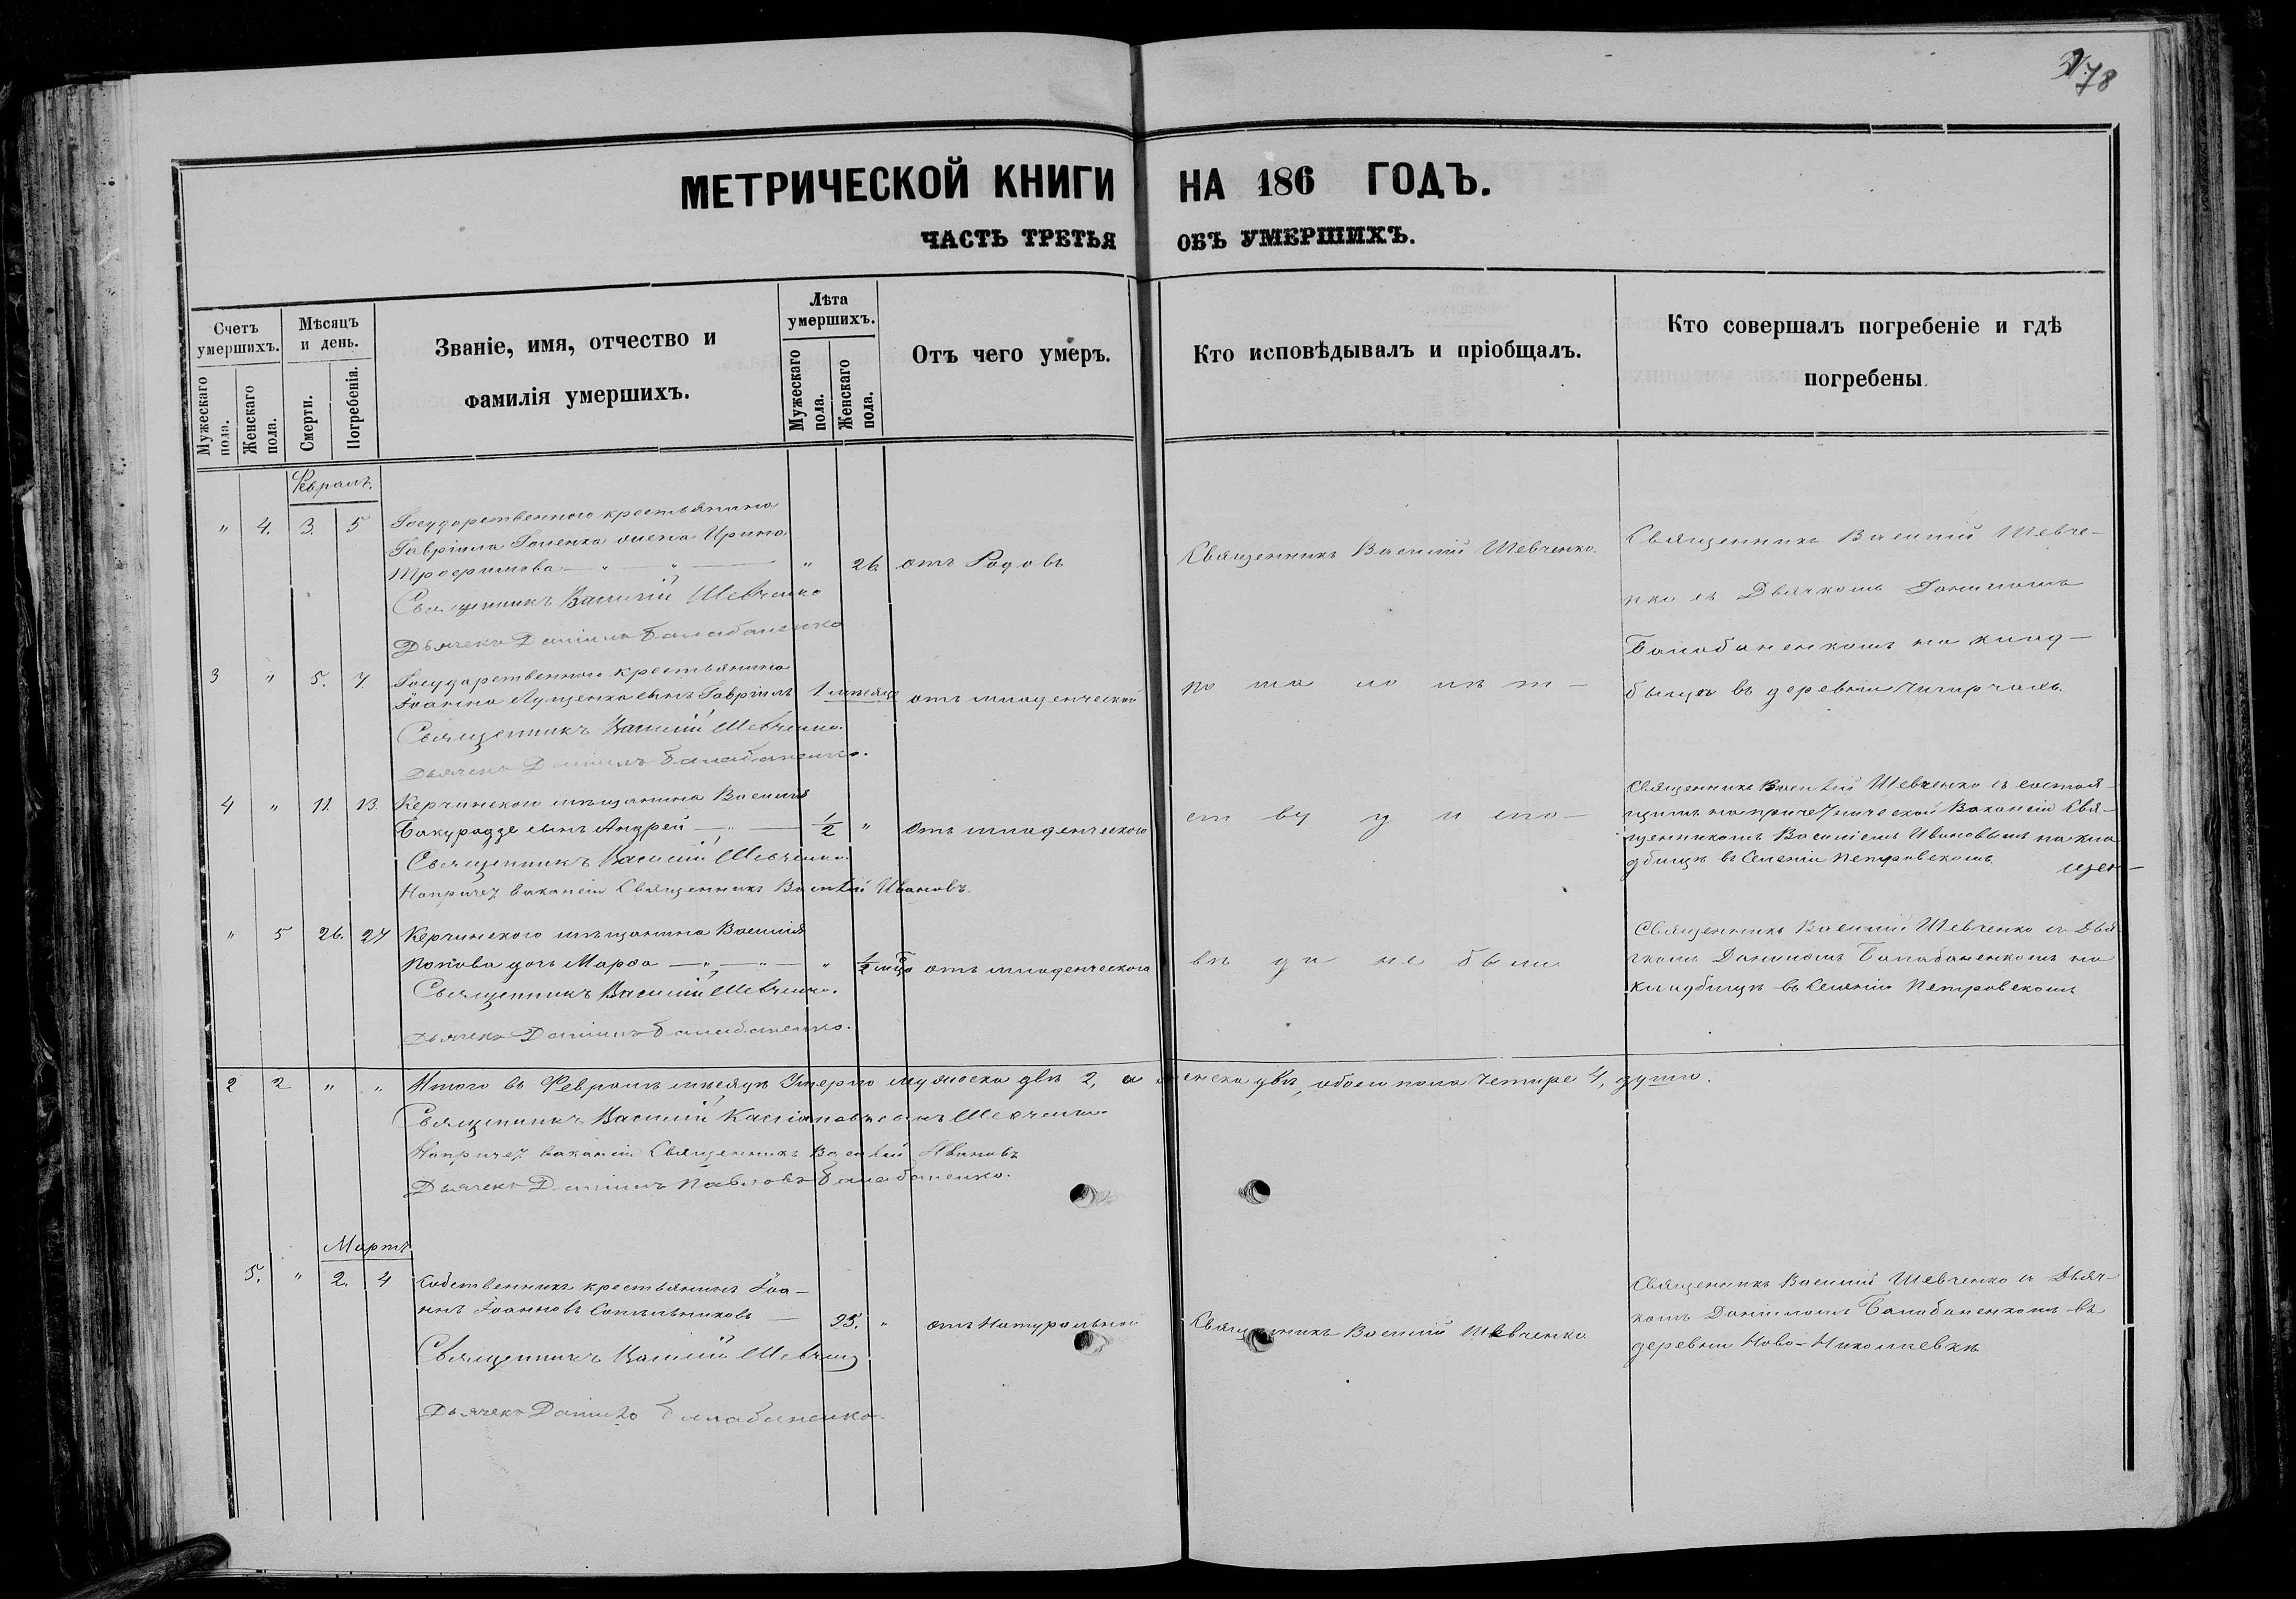 278
МЕТРИЧЕСКОЙ КНИГИ НА 186 ГОДЪ.
ЧАСТЬ ТРЕТЬЯ ОБЪ УМЕРШИХЪ.
Счетъ умершихъ.
Мужескаго пола.
Женскаго пола.
Мѣсяцъ и день.
Смерти.
Погребенія.
Званіе, имя, отчество и
фамилія умершихъ.
Лѣта умершихъ.
Мужескаго пола.
Женскаго пола.
Отъ чего умеръ.
Кто исповѣдывалъ и пріобщалъ.
Кто совершалъ погребеніе и гдѣ
погребены.
Февраль.
" 4. 3. 5 Государственного крестьянина
Гавріила жена Ирина
" 26. отъ Родовъ
Священникъ Василій Шевченко
Дьячекъ Даніилъ Балабаненко
Священникъ Василій Шевченко.
Священникъ Василій Шевче-
нко съ Дьячкомъ Даниломъ
Балабаненкомъ на клад-
бищѣ въ деревни
3 " 5. 7. Государственного крестьянина
Іоанна Луценка сынъ Гавріилъ 1 мѣсяцъ отъ младенческой
Священникъ Василій Шевченко.
Дьячекъ Даніилъ Балабаненко.
по ма ло лѣт-
4 " 11. 13. Керчинского мѣщанина Василія
Бакурадзе сынъ Андрей 1/2 " Отъ младенческого
Священникъ Василій Шевченко.
На причет вакансіи Священникъ Василій Ивановъ.
ст ву и
Священникъ Василій Шевченко съ состоя-
щимъ на причетнической Вакансіи Свя-
щенникомъ Василіемъ Ивановымъ на кла
дбищѣ въ Селеніи Петровскомъ
" 5 26. 27 Керчинского мѣщанина Василія
Попова дочь Марфа " 1/2 отъ младенческого
Священникъ Василій Шевченко.
Дьячекъ Даніилъ Балабаненко.
не были
Священникъ Василій Шевченко съ Дья
чкомъ Даниломъ Балабаненкомъ на
кладбищѣ въ Селеніи Петровскомъ
2 2 " " Итого въ Февралѣ мѣсяцѣ Умерло мужеска два 2, а женска двѣ, обоего пола четыре 4, душъ.
Священникъ Василій Шевченко.
На причет вакансіи Священникъ Василій Ивановъ
Дьячекъ Даніилъ Павловъ Балабаненко.
Мартъ
5. " 2. 4 Собственникъ крестьянинъ Іоа-
ннъ Іоанновъ Сотъниковъ 95. " отъ Натуральной
Священникъ Василій Шевченко
Дьячекъ Данило Балабаненко.
Священникъ Василій Шевченко
Священникъ Василій Шевченко съ Дьяч-
комъ Даніиломъ Балабаненкомъ въ
деревни Ново-Николаевкѣ